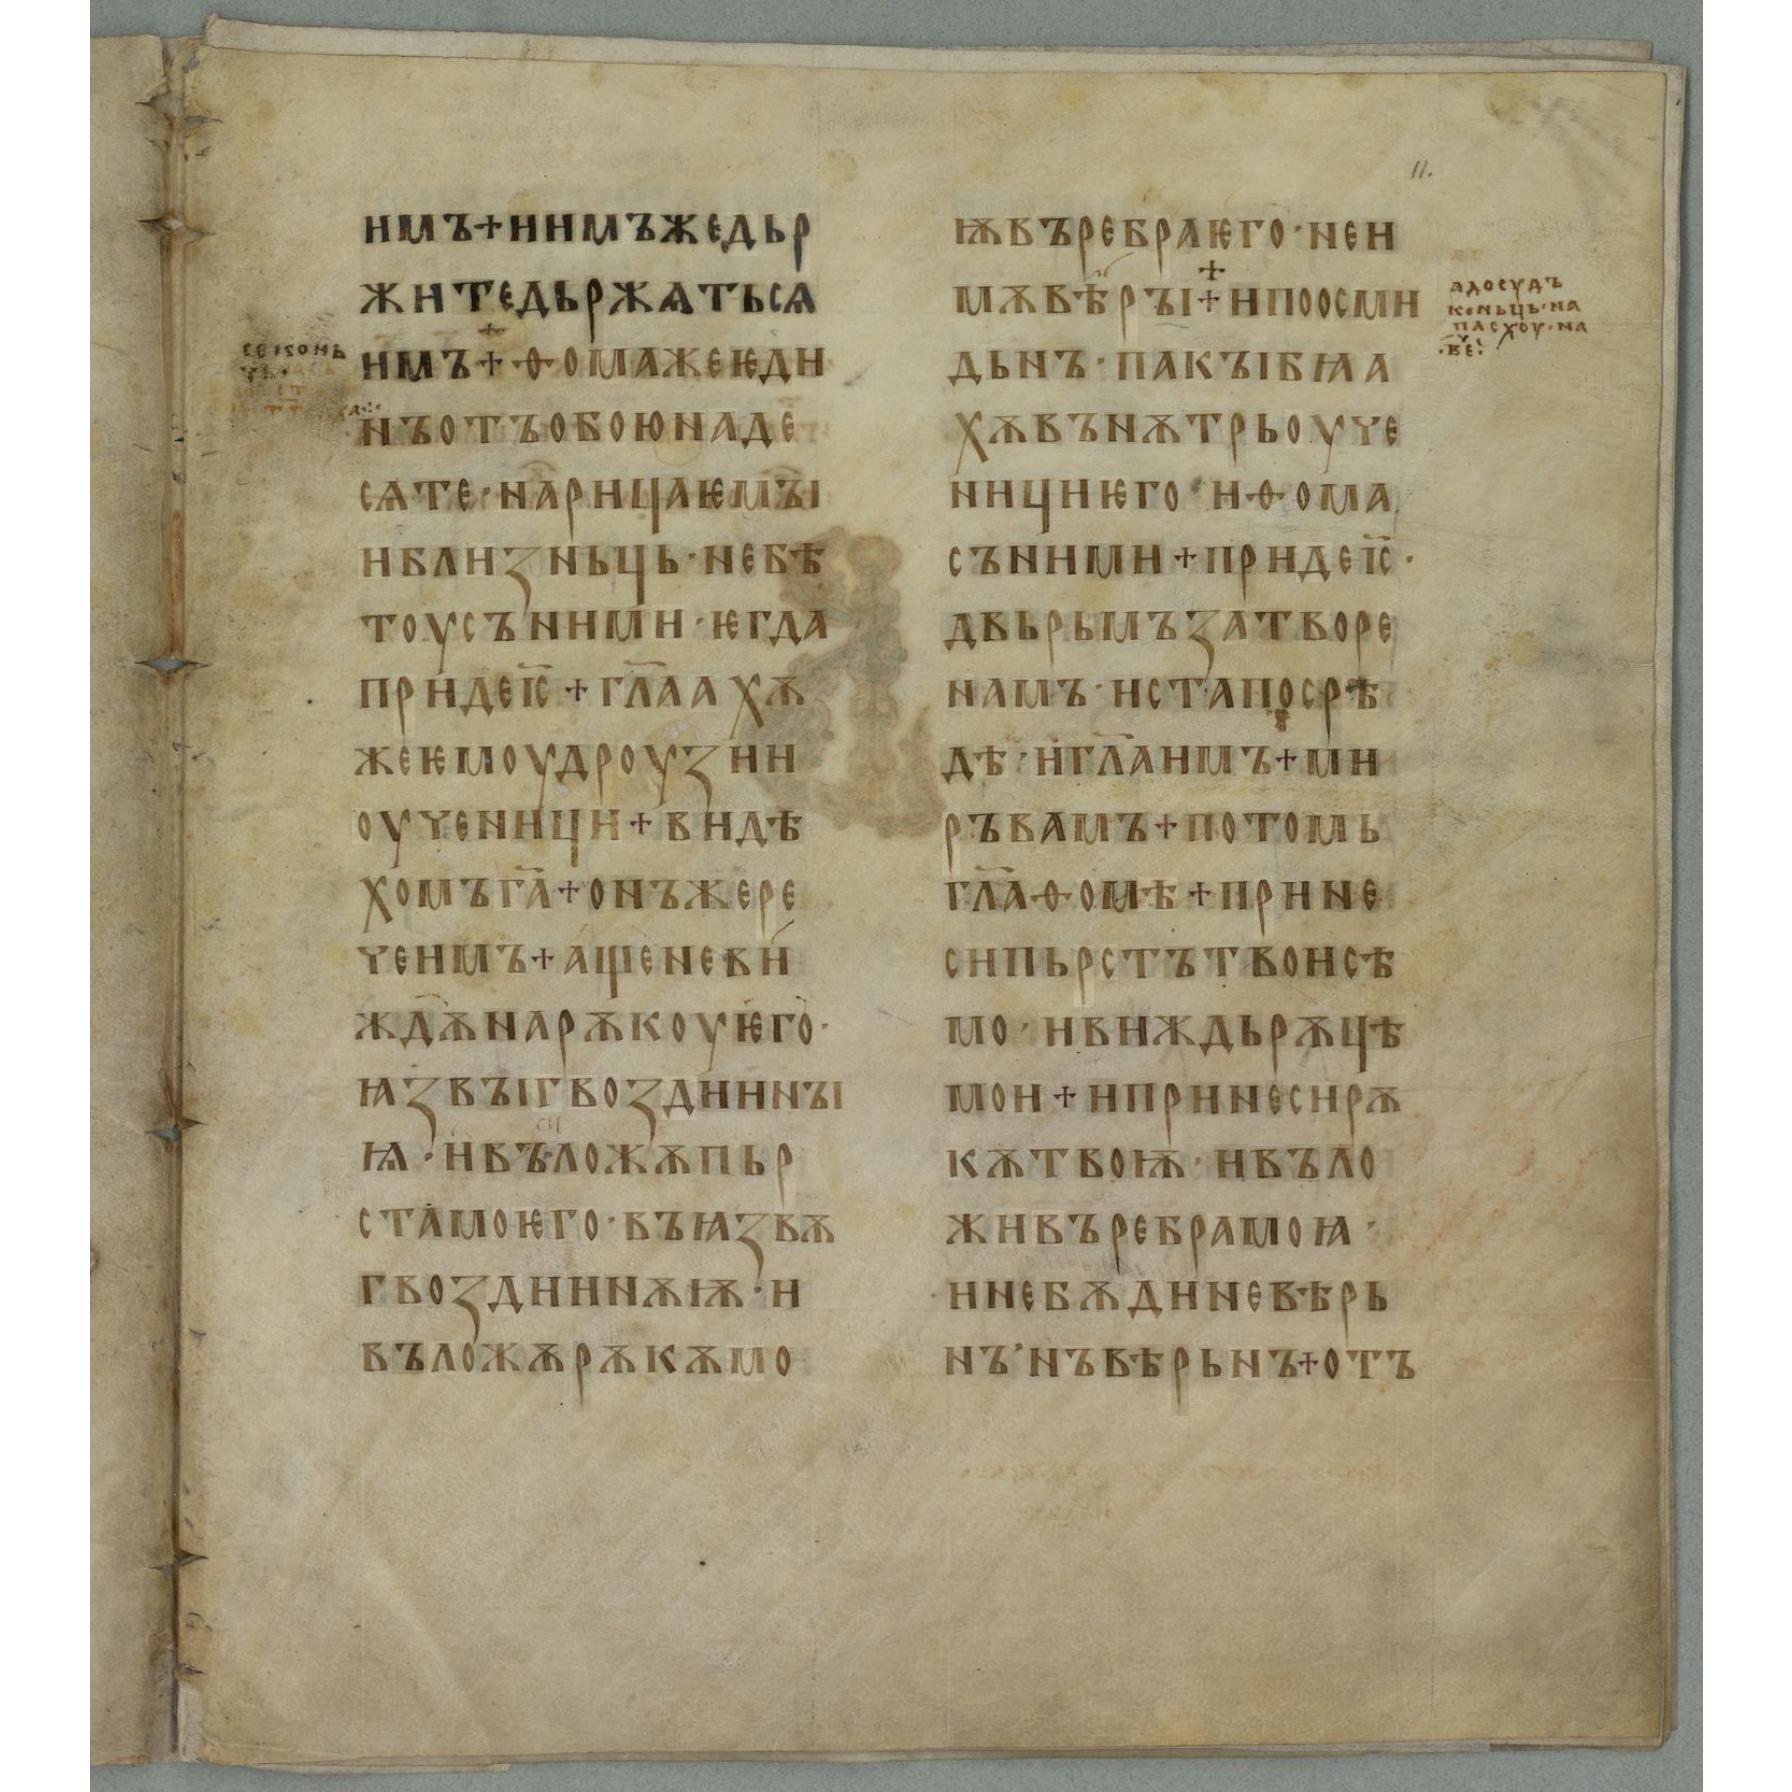 11.
имъ+инмъжедьр
житедьржѧтьсѧ
имъ+ѳомажеѥди
нъотъобоюнаде
сѧте·нарицаѥмꙑ
иблизньць·небѣ
тоусъними·ѥгда
придеі҃с+гл҃аахѫ
жеѥмоудроузии
оученици+видѣ
хомъга҃+онъжере
чеимъ+ащеневи
ждѫнарѫкоуѥго·
ꙗзвꙑгвоздинꙑ
ꙗ·ивъложѫпьр
стамоѥго·въꙗзвѫ
гвоздинѫѭ·и
въложѫрѫкѫмо
ѭвъребраѥго·неи
мѫвѣрꙑ+ипоосми
дьнъ·пакꙑбꙗа
хѫвънѫтрьоуче
ницииѥго·иѳома
съними+придеі҃с·
двьрьмъзатворе
намъ·истапосрѣ
дѣ·игл҃аимъ+ми
ръвамъ+потомь
гл҃аѳомѣ+прине
сипьрстътвоисѣ
мо·ивиждьрѫцѣ
мои+ипринесирѫ
кѫтвоѭ·ивъло
живъребрамоꙗ·
инебѫдиневѣрь
нъ·нъвѣрьнъ+отъ
адосудъ
коньць·на
пасхоу·на
·ве҃ч҃: